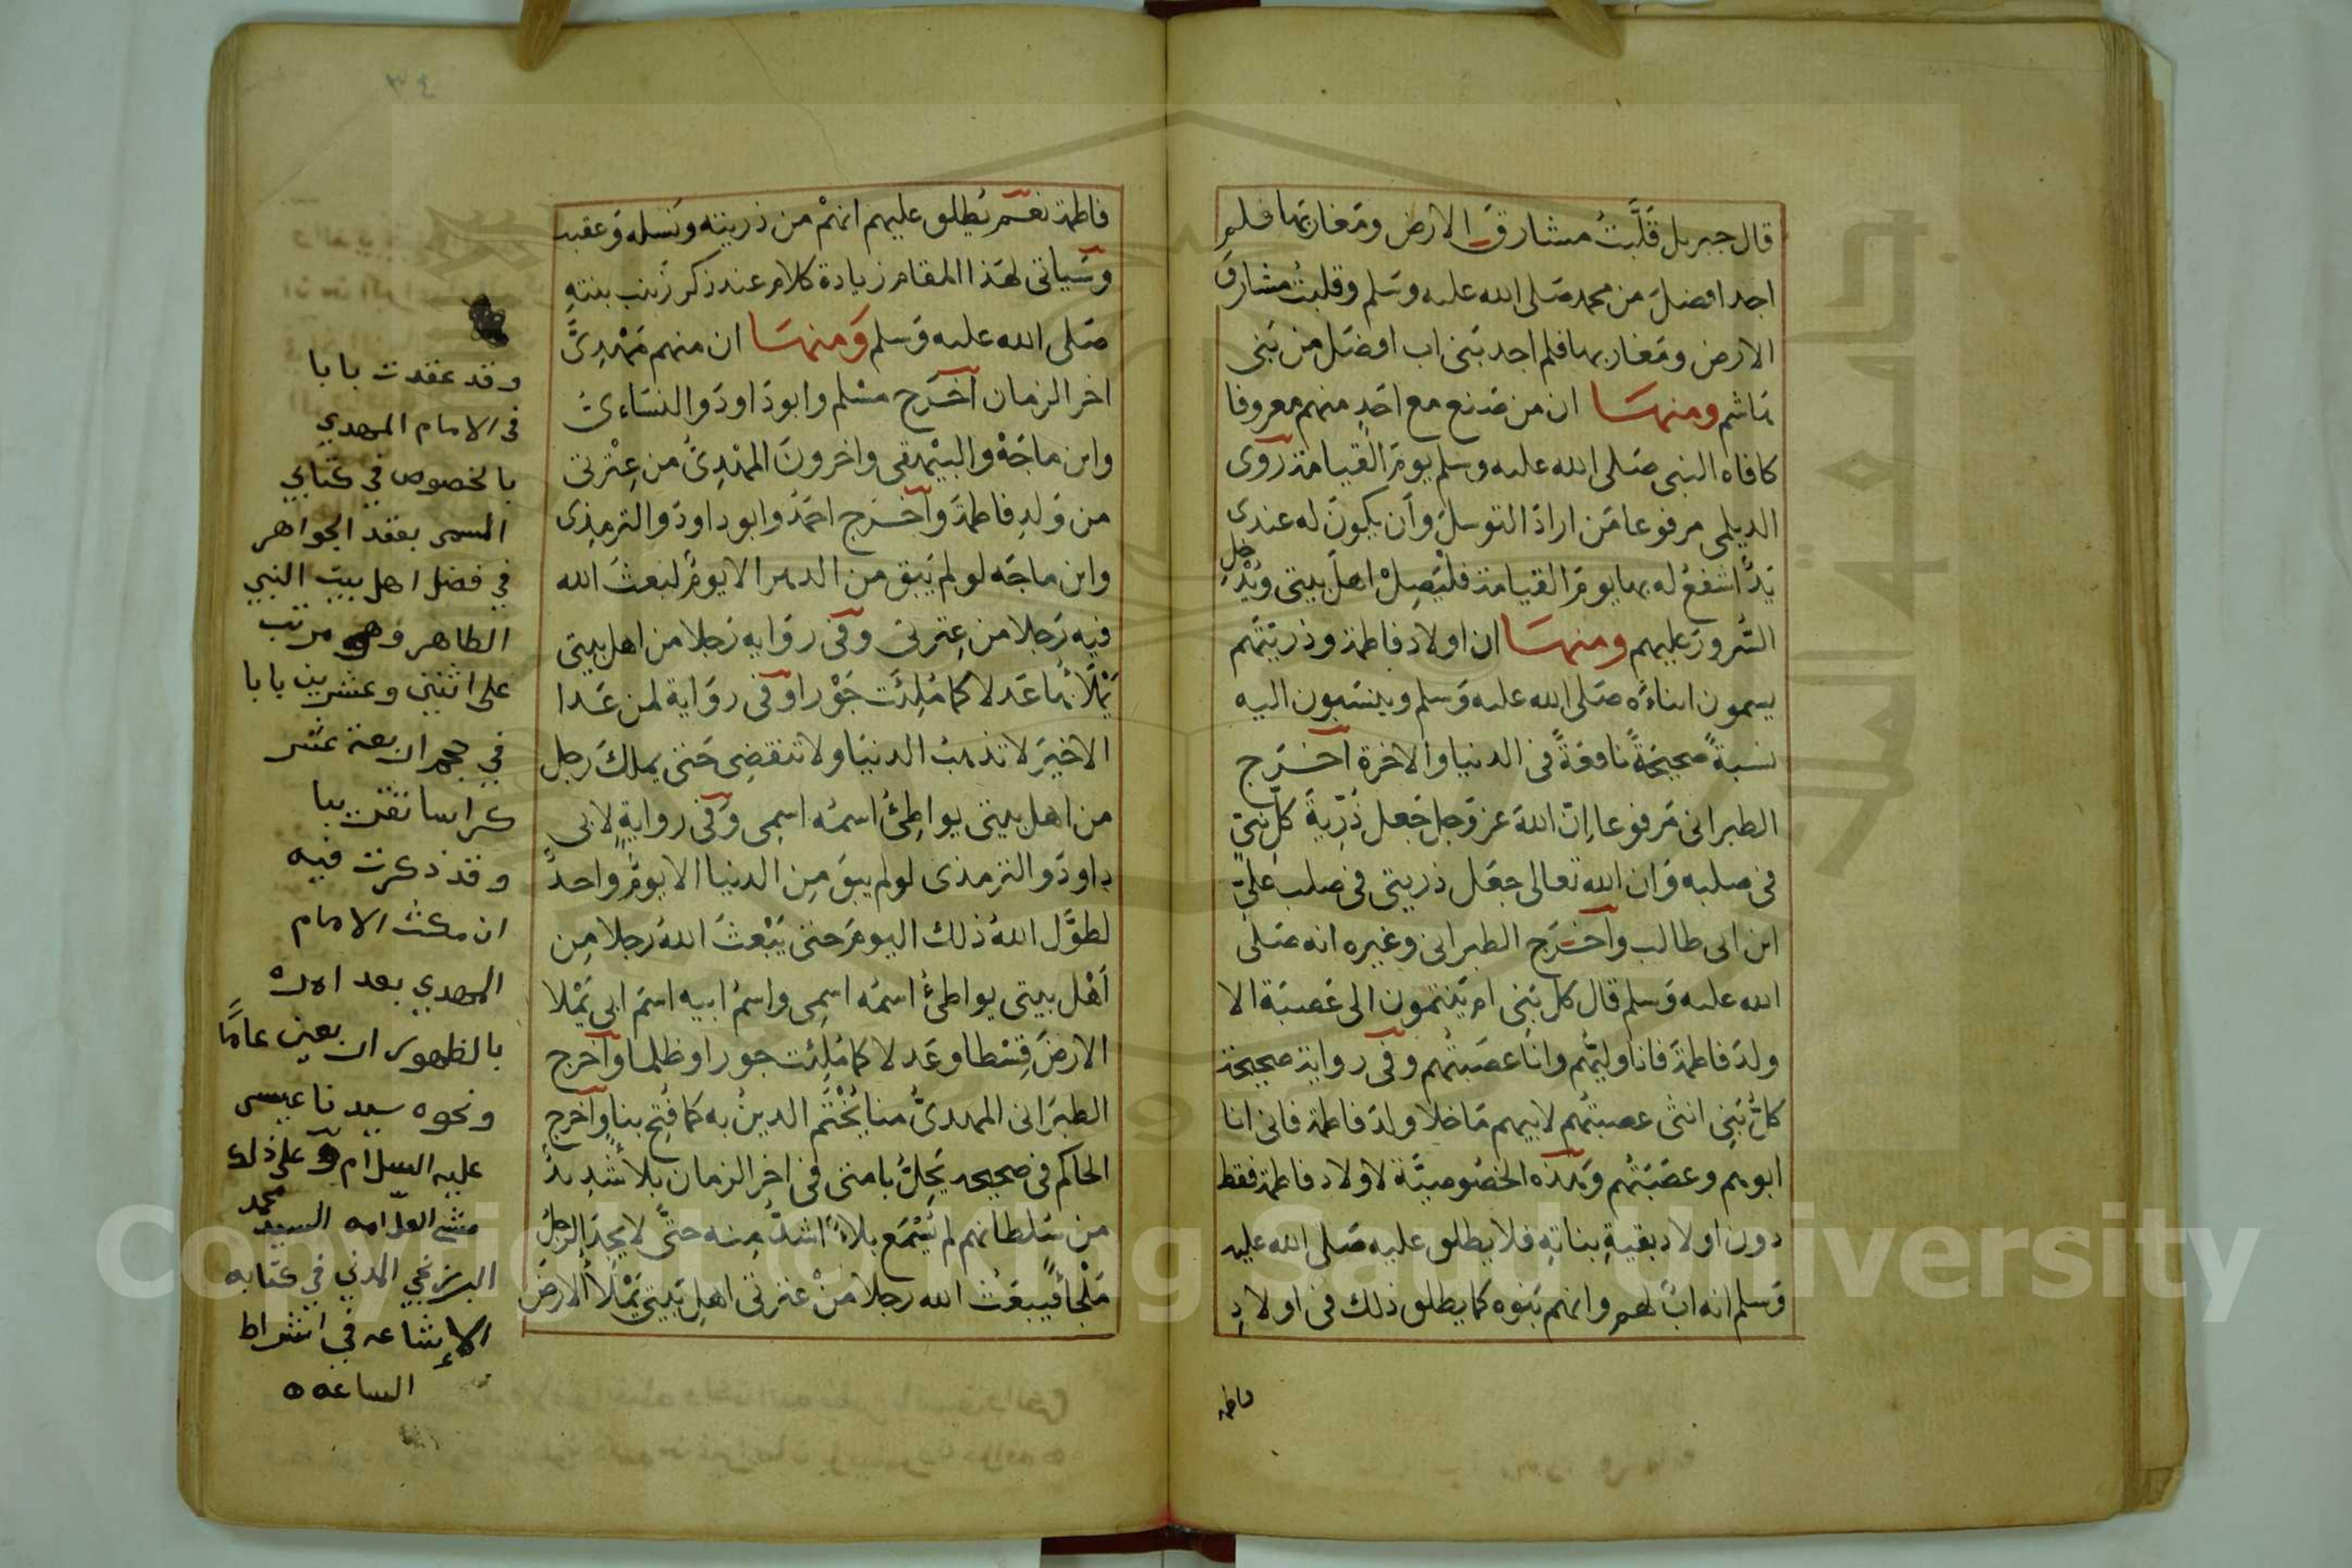 قال جبريل قَلَّبتُ مشارقَ الارض ومَغاربها فلم
اجد افضلَ من محمد صَلى الله عليه وسَلم وقلبتُ مشارقَ
الارض ومَغاربها فلم اجد بَنى اب افضَل من بَنى
هَاشم ومنهسَا ان من صَنع مع احَدٍ منهم معروفا
كافاه النبى صَلى الله عليه وسلم يومَ القيامة رَوى
الديلمى مرفوعا مَن ارادَ التوسلَ وأن يكونَ له عندى
يَدٌ اشفعُ له بها يومَ القيامة فليَصِلْ اهلَ بيتى ويُدْخِلِ
السُّرورَ عليهم ومنهسَا ان اولاد فاطمة وذريتَهم
يسمون ابناءَه صَلى الله عليه وَسلم وينسَبون اليه
نسبةً صحيحَةً نافعَةً فى الدنيا والاخرة اخَرَج
الطبرانى مَرفوعا اِنّ اللهَ عزوَجل جَعل ذُرّيةَ كلِّ نبيّ
فى صلبه وَان الله تعالى جعَل ذريتى فى صلب علىّ
ابن ابى طالب واخَرَج الطبرانى وغيره انه صَلى
الله عليه وَسلم قال كل بَنِى ام يَنتمون الى عَصَبَة الا
ولدَ فاطمةَ فانا وليّهُم وانَا عصَبتُهم وفى رواية صحيحة
كلُّ بَنِى انثى عصبتُهم لابيهم مَا خلا ولدَ فاطمة فانى انا
ابوهم وعصَبَتُهم وَهذه الخصُوصيَّة لاولاد فاطمة فقط
دون اولاد بقيةِ بناتِهِ فلا يطلق عليه صَلى الله عليه
وَسلم انه ابٌ لهم وانهم بَنوه كما يطلق ذلك فى اولادِ
فاطمة
فاطمة نعَم يُطلق عليهم انهمْ من ذريته ونَسله وَعقبه
وسَياتى لهَذا المقام زيادة كلام عند ذكر زَينب بنتهِ
صَلى الله عليه وَسلم وَمنهسَا ان منهم مَهْدِىَّ
اخر الزمان اَخرَج مسْلم وابودَاودَ والنسَاءىُ
وابن ماجَهْ والبيْهقى واخرونَ المهْدِىُّ من عِتْرتى
من وَلدِ فاطمةَ وَاخَرج احمَدُ وابوداودَ والترمِذى
وابن ماجَه لو لم يَبق من الدهر الا يومٌ لبَعثَ الله
فيه رَجلا من عِترتى وفى روَايه رَجلا من اهل بيتى
يَمْلَأُهَا عَدلا كما مُلِئَت جَوْرا وفى روَاية لمن عَدا
الاخيرَ لا تذهَبُ الدنيَا ولا تنقضِى حَتى يملكَ رجل
من اهل بيتى يواطِئُ اسمُه اسمِى وَفى روايةٍ لابى
داودَ والترمذى لو لم يبقَ مِن الدنيا الا يومٌ واحدٌ
لطوَّل اللهُ ذلك اليومَ حتى يَبْعثَ اللهُ رجلا مِن
اَهْل بيتى يواطئُ اسمُه اسمِى واسمُ ابيه اسمَ ابى يَمْلا
الارضَ قِسْطا وعَدلا كما مُلِئت جورا وظلما وَاخرج
الطبَرانى المهدىُّ منا يُخْتَم الدينُ به كما فُتِح بنا وَاخرج
الحاكم فى صحيحه يَحِلُّ بامتى فى اخِر الزمان بلاءٌ شَدِيدٌ
من سُلطانهم لم يُسْمَع بلاءٌ اشدُّ مِنه حتّى لا يجدَ الرجلُ
مَلْجأ فيَبعَثُ الله رجلا مَنْ عترتى اهلِ بَيتى يَمْلأُ الارضَ
وقد عقدت بابا
فى الامام المهدي
بالخصوص في كتابي
المسمى بعقد الجواهر
في فضل اهل بيت النبي
الطاهر وهو مرتب
على اثنين وعشرين بابا
في حجم اربعة عشر
كراسا تقريبا
وقد ذكرت فيه
ان مكث الامام
المهدي بعد امره
بالظهور اربعين عامًا
ونحوه سيدنا عيسى
عليه السلام وعلى ذلك
مشى العلامه السيد محمد
البرزنجي المدني في كتابه
الإشاعه في اشراط
الساعه ه
Copyright © King Saud University